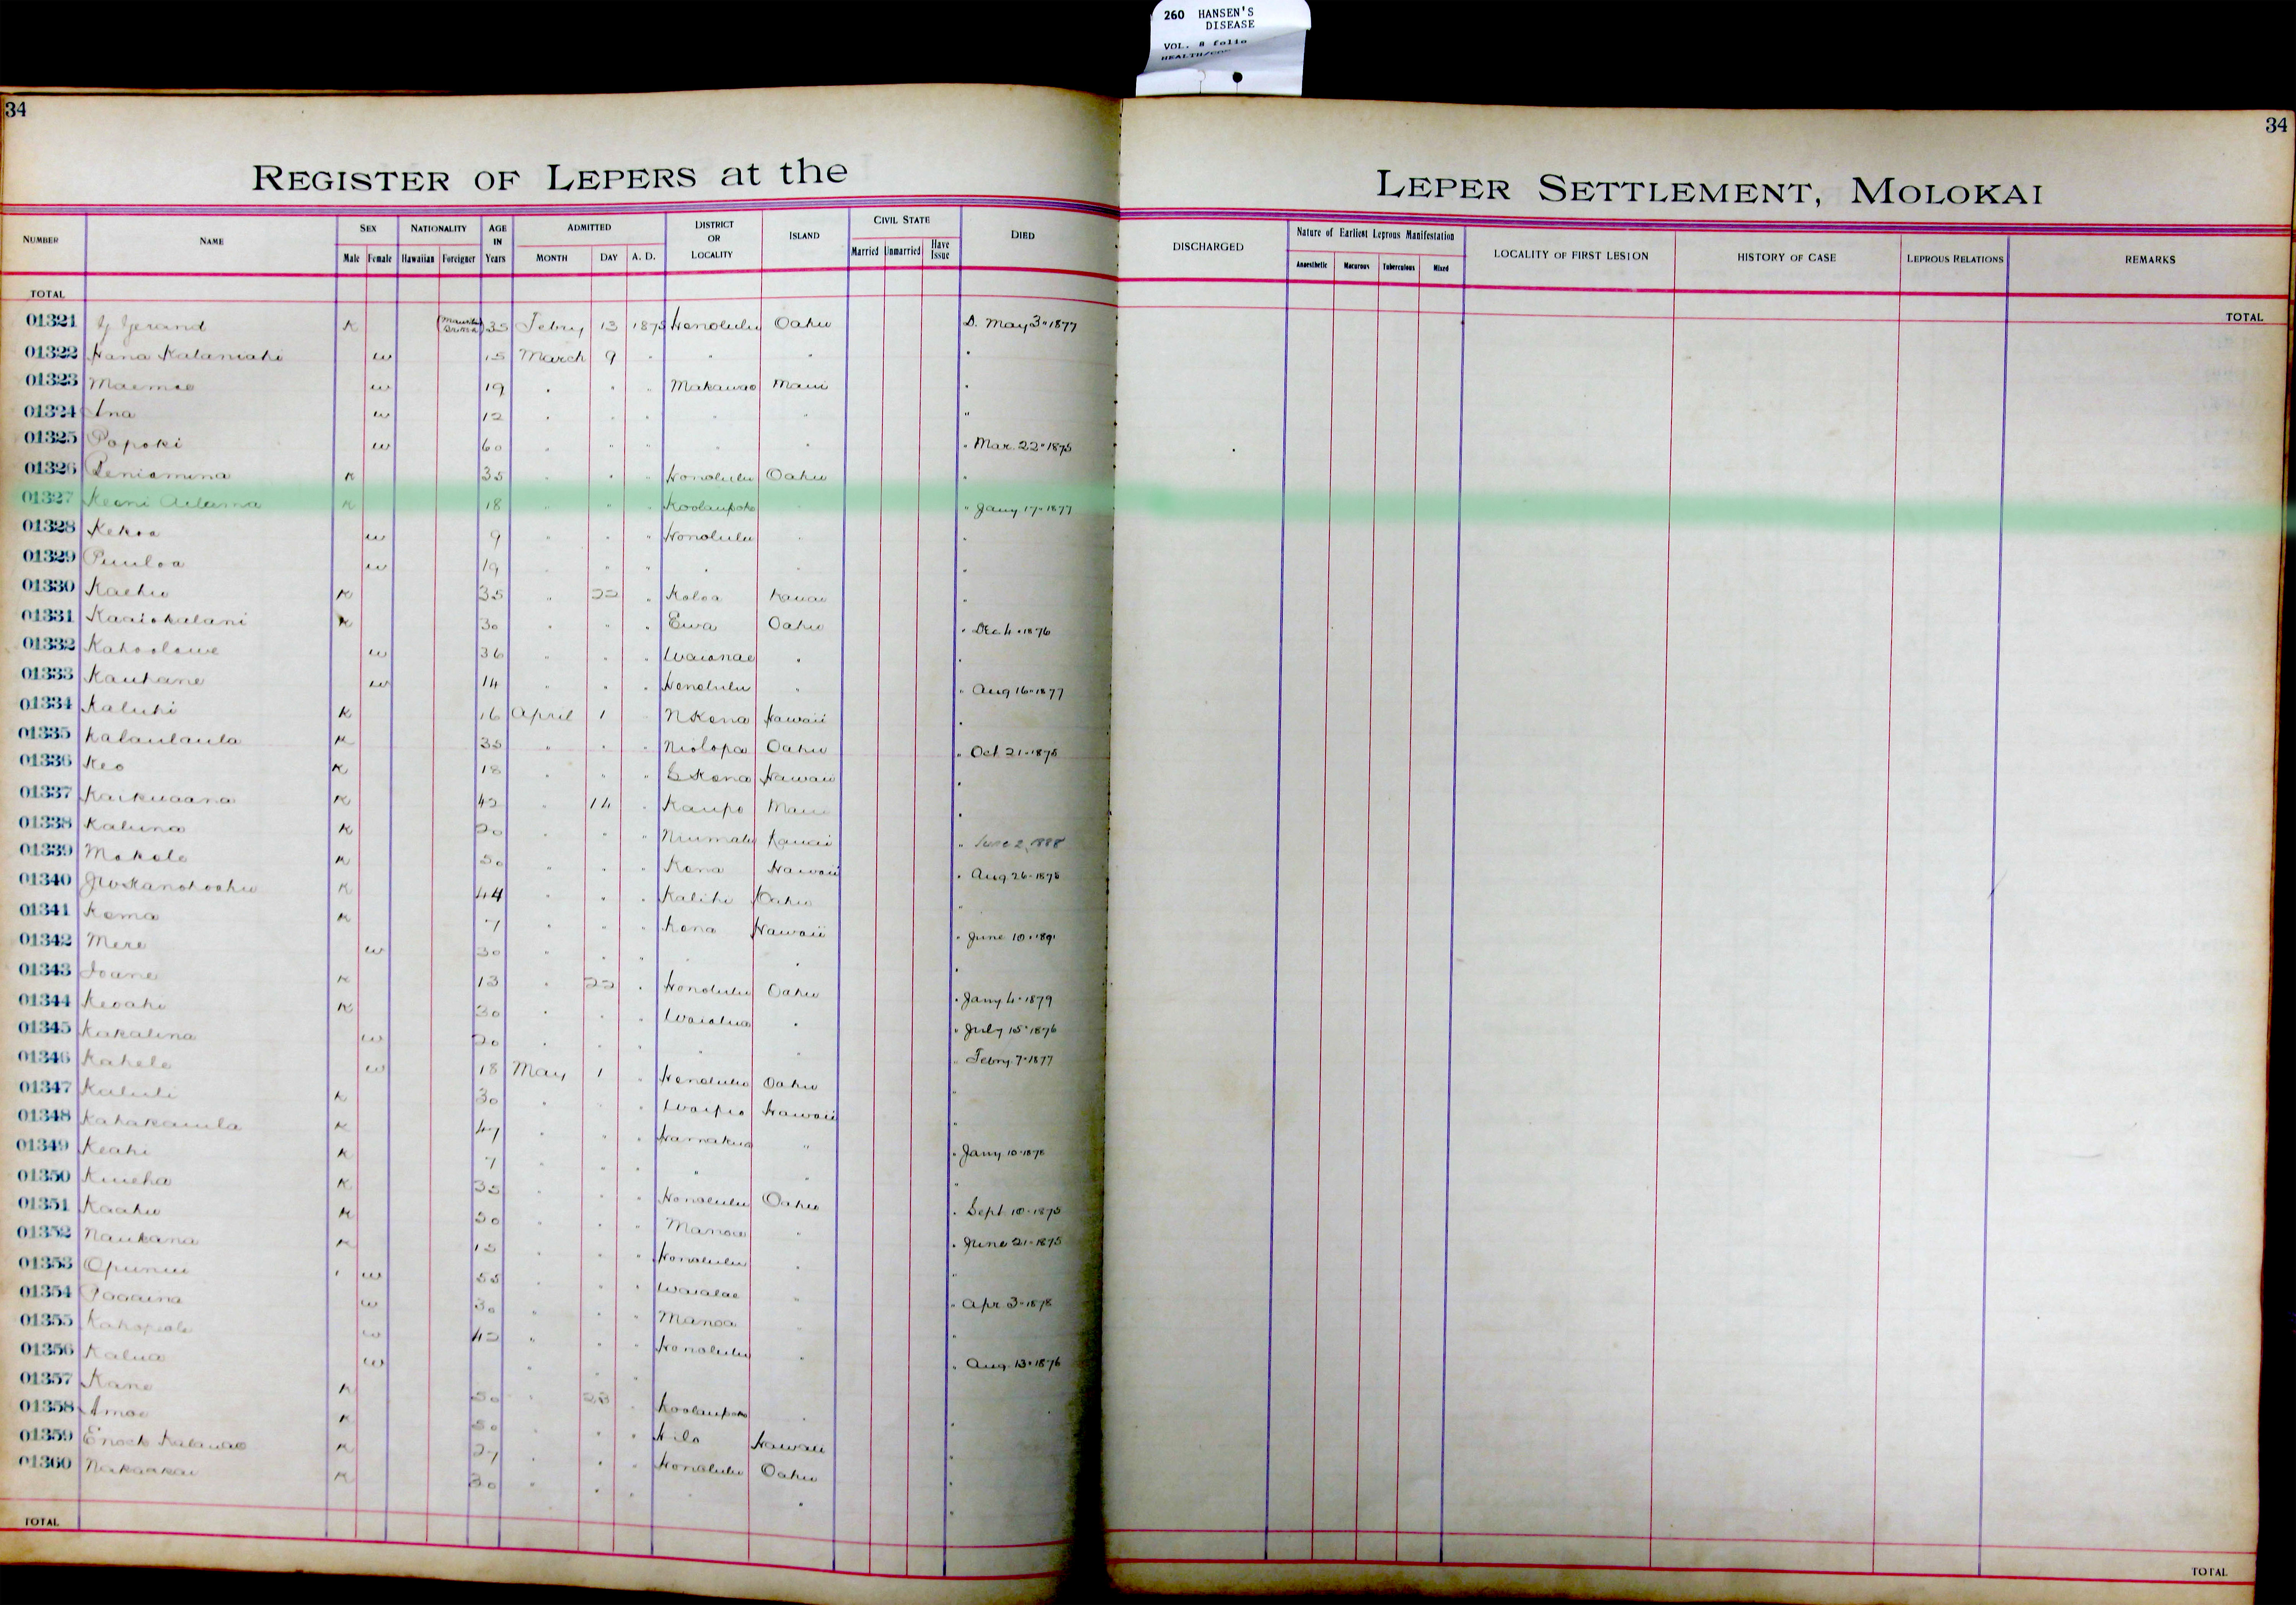 260 HANSEN'S
DISEASE
VOL. 8 folio
34
34
REGISTER OF LEPERS at the
LEPER SETTLEMENT, MOLOKAI
NUMBER NAME SEX Male Female NATIONALITY Hawaiian Foreigner AGE IN Years ADMITTED MONTH DAY A. D. DISTRICT OR LOCALITY ISLAND CIVIL STATE Married Unmarried Have Issue DIED
DISCHARGED Nature of Earliest Leprous Manifestation Anaesthetic Macurous Tuberculous Mixed LOCALITY OF FIRST LESION HISTORY OF CASE LEPROUS RELATIONS REMARKS
TOTAL
TOTAL
01321 Gerand K 35 Febry 13 1875 Honolulu Oahu D. May 3 " 1877
01322 Hana Kalaniahi w 15 March 9 " " " "
01323 Maemae w 19 " " " Makawao Maui "
01324 Ana w 12 " " " " " "
01325 Popoki w 60 " " " " " " Mar. 22 " 1875
01326 Peniamina K 35 " " " Honolulu Oahu "
01327 Keoni Ailama K 18 " " " Koolaupoko " " Jany 17 " 1877
01328 Kekoa w 9 " " " Honolulu " "
01329 Puuloa w 19 " " " " " "
01330 Kaehu K 35 " 22 " Koloa Kauai "
01331 Kaaiokalani K 30 " " " Ewa Oahu " Dec 4 " 1876
01332 Kahoolawe w 36 " " " Waianae " "
01333 Kauhane w 14 " " " Honolulu " " Aug 16 " 1877
01334 Kaluhi K 16 April 1 " N Kona Hawaii "
01335 Kalaulaula K 35 " " " Niolopa Oahu " Oct 21 " 1875
01336 Keo K 18 " " " S Kona Hawaii "
01337 Kaikuaana K 42 " 14 " Kaupo Maui "
01338 Kaluna K 20 " " " Niumalu Kauai " June 2, 1888
01339 Makole K 50 " " " Kona Hawaii " Aug 26 " 1878
01340 JW Kanohoohu K 44 " " " Kalihi Oahu "
01341 Kema K 7 " " " Kona Hawaii " June 10 " 1891
01342 Mere w 30 " " " " " "
01343 Ioane K 13 " 22 " Honolulu Oahu " Jany 4 " 1879
01344 Keoahi K 30 " " " Waialua " " July 15 " 1876
01345 Kakalina w 20 " " " " " " Febry 7 " 1877
01346 Kahele w 18 May 1 " Honolulu Oahu "
01347 Kaluli K 30 " " " Waipio Hawaii "
01348 Kahakauila K 47 " " " Hamakua " " Jany 10 " 1878
01349 Keahi K 7 " " " " " "
01350 Kuueha K 35 " " " Honolulu Oahu " Sept 10 " 1875
01351 Kaahu K 50 " " " Manoa " " June 21 " 1875
01352 Naukana K 15 " " " Honolulu " "
01353 Opunui w 55 " " " Waialae " " Apr 3 " 1878
01354 Paaaina w 30 " " " Manoa " "
01355 w 42 " " " Honolulu " " Aug. 13 " 1876
01356 Kalua w " " "
01357 Kane K 50 " 28 " Koolaupoko " "
01358 Amoe K 50 " " " Hilo Hawaii "
01359 Enoch Kalauao K 27 " " " Honolulu Oahu "
01360 Nakaakai K 30 " " " " " "
TOTAL
TOTAL